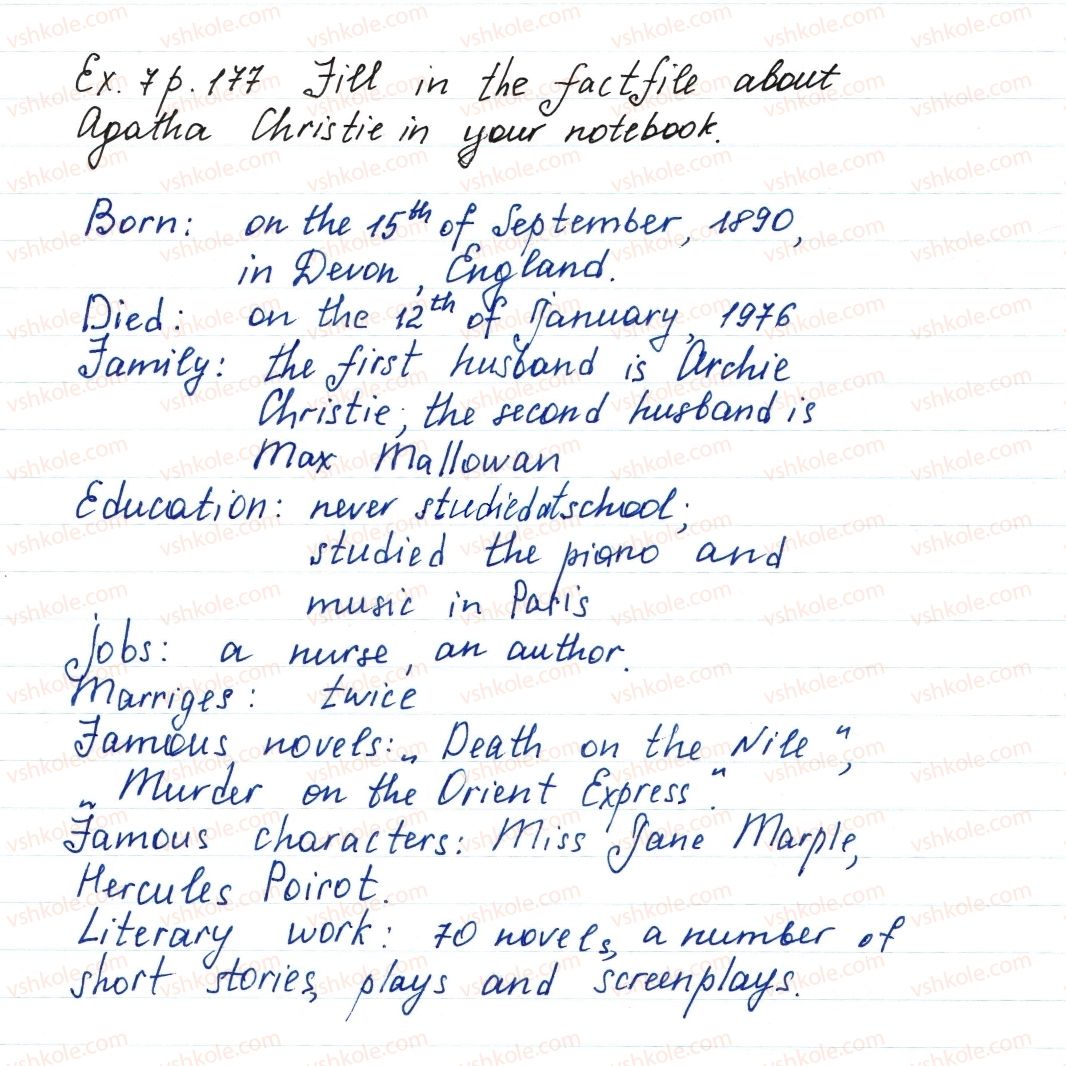 Ex. 7 p. 177 Fill in the factfile about
Agatha Christie in your notebook.
Born: on the 15th of September, 1890,
in Devon, England.
Died: on the 12th of January, 1976
Family: the first husband is Archie
Christie; the second husband is
Max Mallowan
Education: never studied at school;
studied the piano and
music in Paris
Jobs: a nurse, an author.
Marriges: twice
Famous novels: „Death on the Nile",
„Murder on the Orient Express".
Famous characters: Miss Jane Marple,
Hercules Poirot.
Literary work: 70 novels, a number of
short stories, plays and screenplays.
vshkole.com